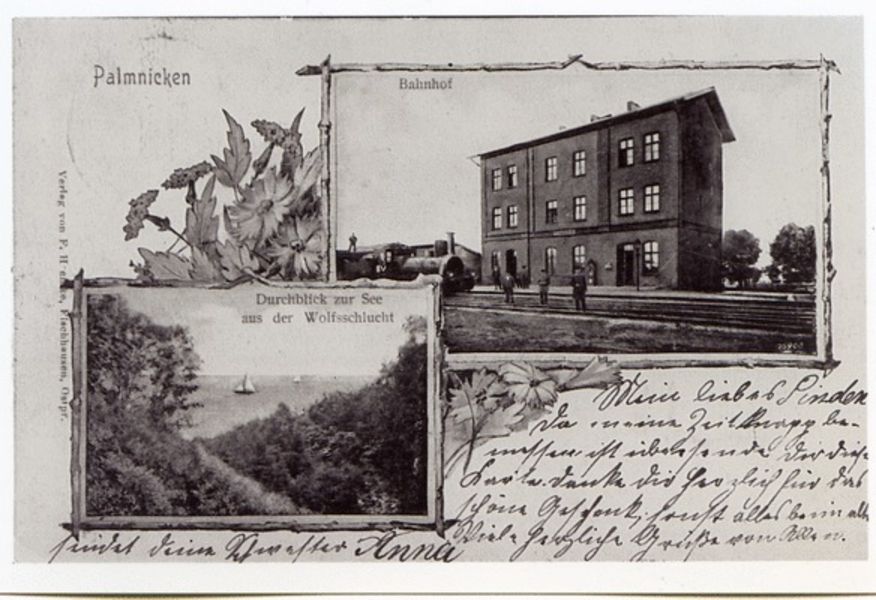 Palmnicken
Bahnhof
Durchblick zur See
aus der Wolfsschlucht
Verlag von F. Fischhausen, Ostpr.
Mein liebes
Da meine Zeit knapp be-
messen ist übersende Dir diese
Karte. danke dir herzlich für das
schöne Geschenk, sonst alles beim alte
Viele herzliche Grüße von Allen.
sendet deine Schwester Anna